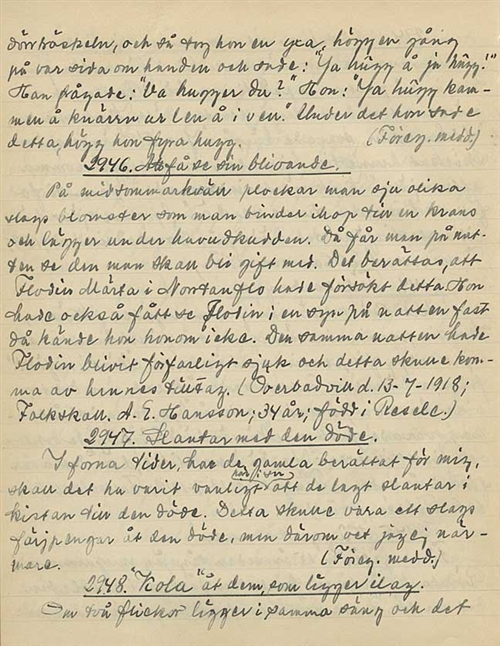 dörrtröskeln, och så tog hon en yxa, högg en gång
på var sida om hunden och sade: "Ja hügg å ja hügg!"
Han frågade: "Va hugger du?" Hon: "Ja hügg kam-
men å knärrn ur len å i ven." Under det hon sade
detta, högg hon fyra hugg. (Föreg. medd.)
2946. Att få se sin blivande.
På midsommarkväll plockar man sju olika
slags blomster som man binder ihop till en krans
och lägger under huvudkudden. Då får man på nat-
ten se den man skall bli gift med. Det berättas, att
Flodin Märta i Nortanflo hade försökt detta. Hon
hade också fått se Flodin i en syn på natten fast
då kände hon honom icke. Den samma natten hade
Flodin blivit förfärligt sjuk och detta skulle kom-
ma av hennes tilltag. (Överbadvill d. 13-7-1918;
Folkskall. A. E. Hansson; 34 år; född i Resele.)
2947. Slantar med den döde.
I forna tider, har de gamla berättat för mig,
skall det ha varit vanligt här i sn att de lagt slantar i
kistan till den döde. Detta skulle vara ett slags
färjpengar åt den döde, men därom vet jag ej när-
mare. (Föreg. medd.)
2948. "Kola" åt dem, som ligger i lag.
Om två flickor ligger i samma säng och det